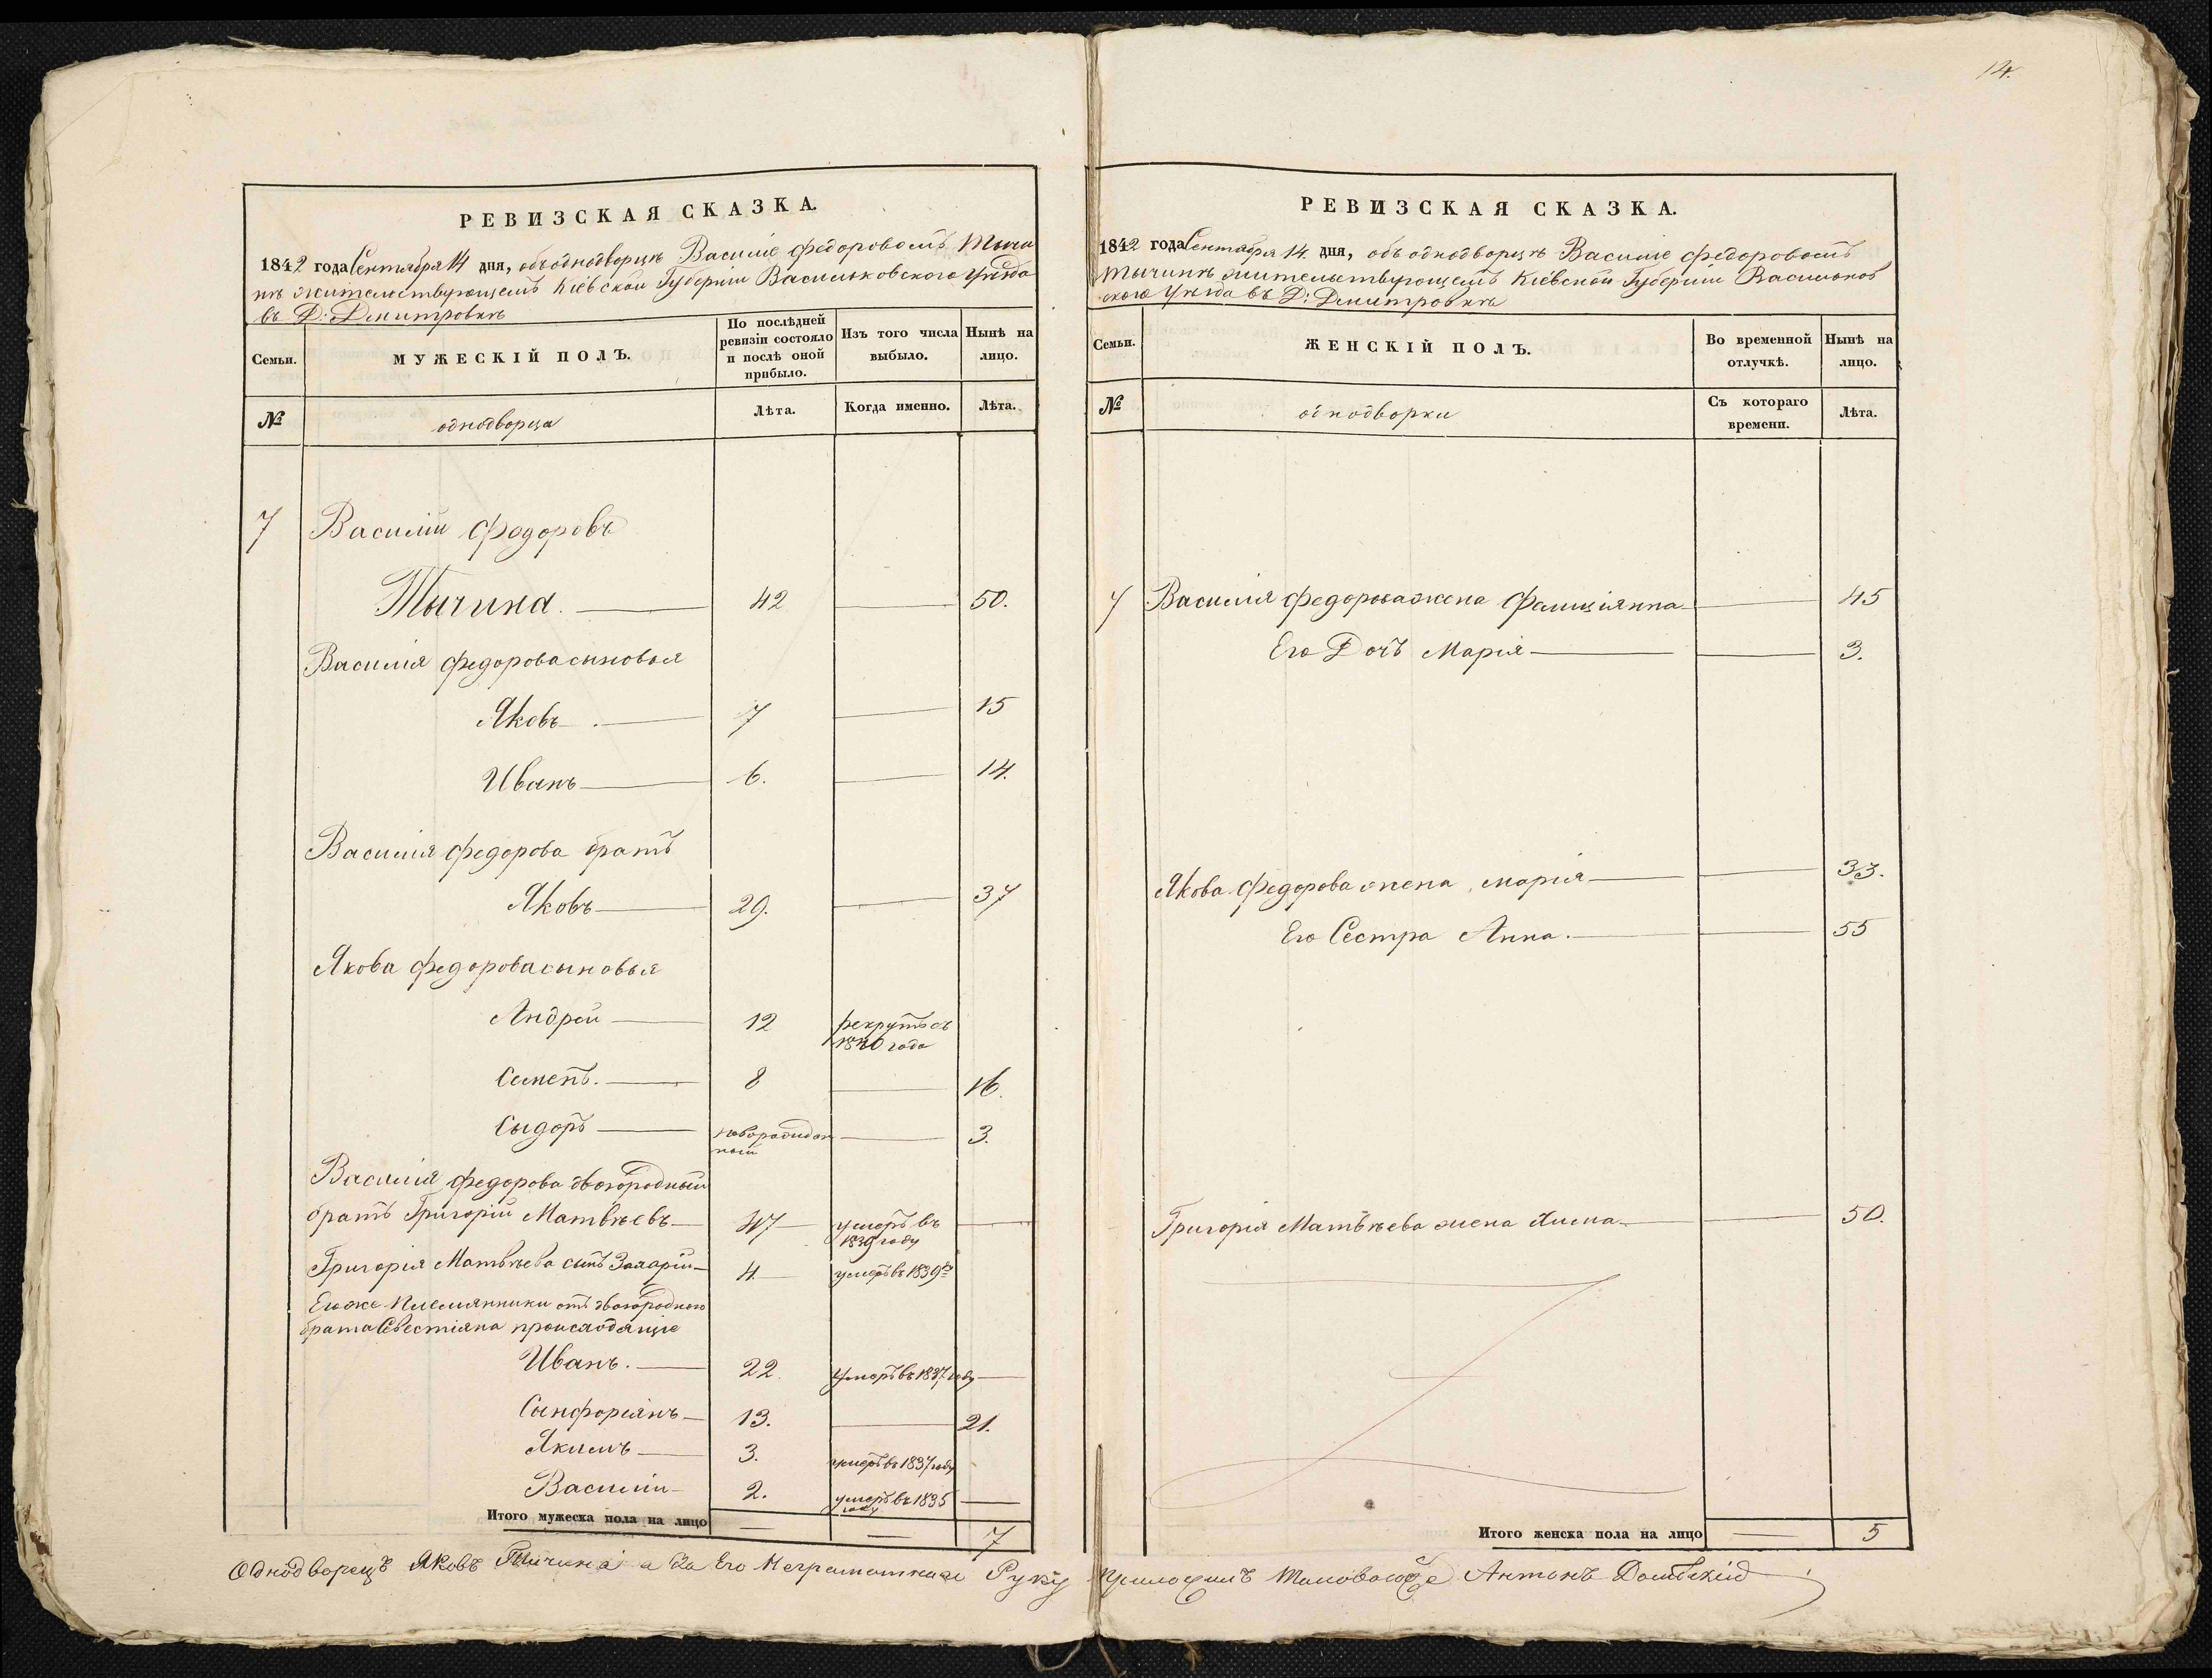 14.
РЕВИЗСКАЯ СКАЗКА.
1842 года Сентября 14 дня, объ однодворцѣ Василіе Федоровомъ Тычи
нѣ жительствующемъ Кіевской Губерніи Васильковского Уѣзда
въ Д: Дмитровкѣ
Семьи.
МУЖЕСКІЙ ПОЛЪ.
По послѣдней
ревизіи состояло
и послѣ оной
прибыло.
Изъ того числа
выбыло.
Нынѣ на
лицо.
№
однодворца
Лѣта.
Когда именно.
Лѣта.
7 Василій Федоровъ
Тычина. 42 50.
Василія Федорова сыновья
Яковъ 7 15
Иванъ 6. 14.
Василія Федорова братъ
Яковъ 29. 37
Якова Федорова сыновья
Андрей 12 рекрутъ съ
1840 года
Семенъ. 8 16.
Сыдоръ новорожден 3.
ный
Василія Федорова двоюродный
братъ Григорій Матвѣевъ 47 умеръ въ
1839 году
Григорія Матвѣева сынъ Захарій 4. умеръ въ 1839 го
Его же племянники отъ двоюродного
брата Севестіяна происходящіе
Иванъ. 22. Умеръ въ 1837 году
Сынфоріянъ 13. 21.
Якимъ 3. умеръ въ 1837 году
Василій 2. умеръ въ 1835
году
Итого мужеска пола на лицо 7
РЕВИЗСКАЯ СКАЗКА.
1842 года Сентября 14. дня, объ однодворцѣ Василіе Федоровомъ
Тычинѣ жительствующемъ Кіевской Губерніи Васильков
ского Уѣзда въ Д: Дмитровкѣ
Семьи.
ЖЕНСКІЙ ПОЛЪ.
Во временной
отлучкѣ.
Нынѣ на
лицо.
№
однодворки
Съ котораго
времени.
Лѣта.
7 Василія Федорова жена Фелиціянна 45
Его Дочъ Марія 3.
Якова Федорова жена Марія 33.
Его Сестра Анна. 55
Григорія Матвѣева жена 50.
Итого женска пола на лицо 5
Однодворецъ Яковъ Тычина а за Его Неграмотнаго Руку приложилъ Антонъ Домбскій